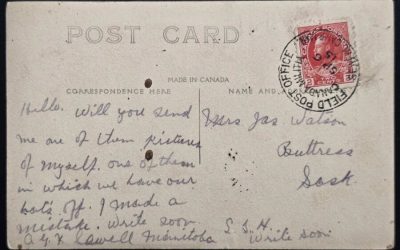 POST CARD
MADE IN CANADA
CORRESPONDENCE HERE
NAME AND
FIELD POST OFFICE
Hello. Will you send
me one of them pictures
of myself. one of them
in which we have our
hats off. I made a
mistake. Write soon
Sewell Manitoba
Mrs Jas Watson
Buttress
Sask
Write soon